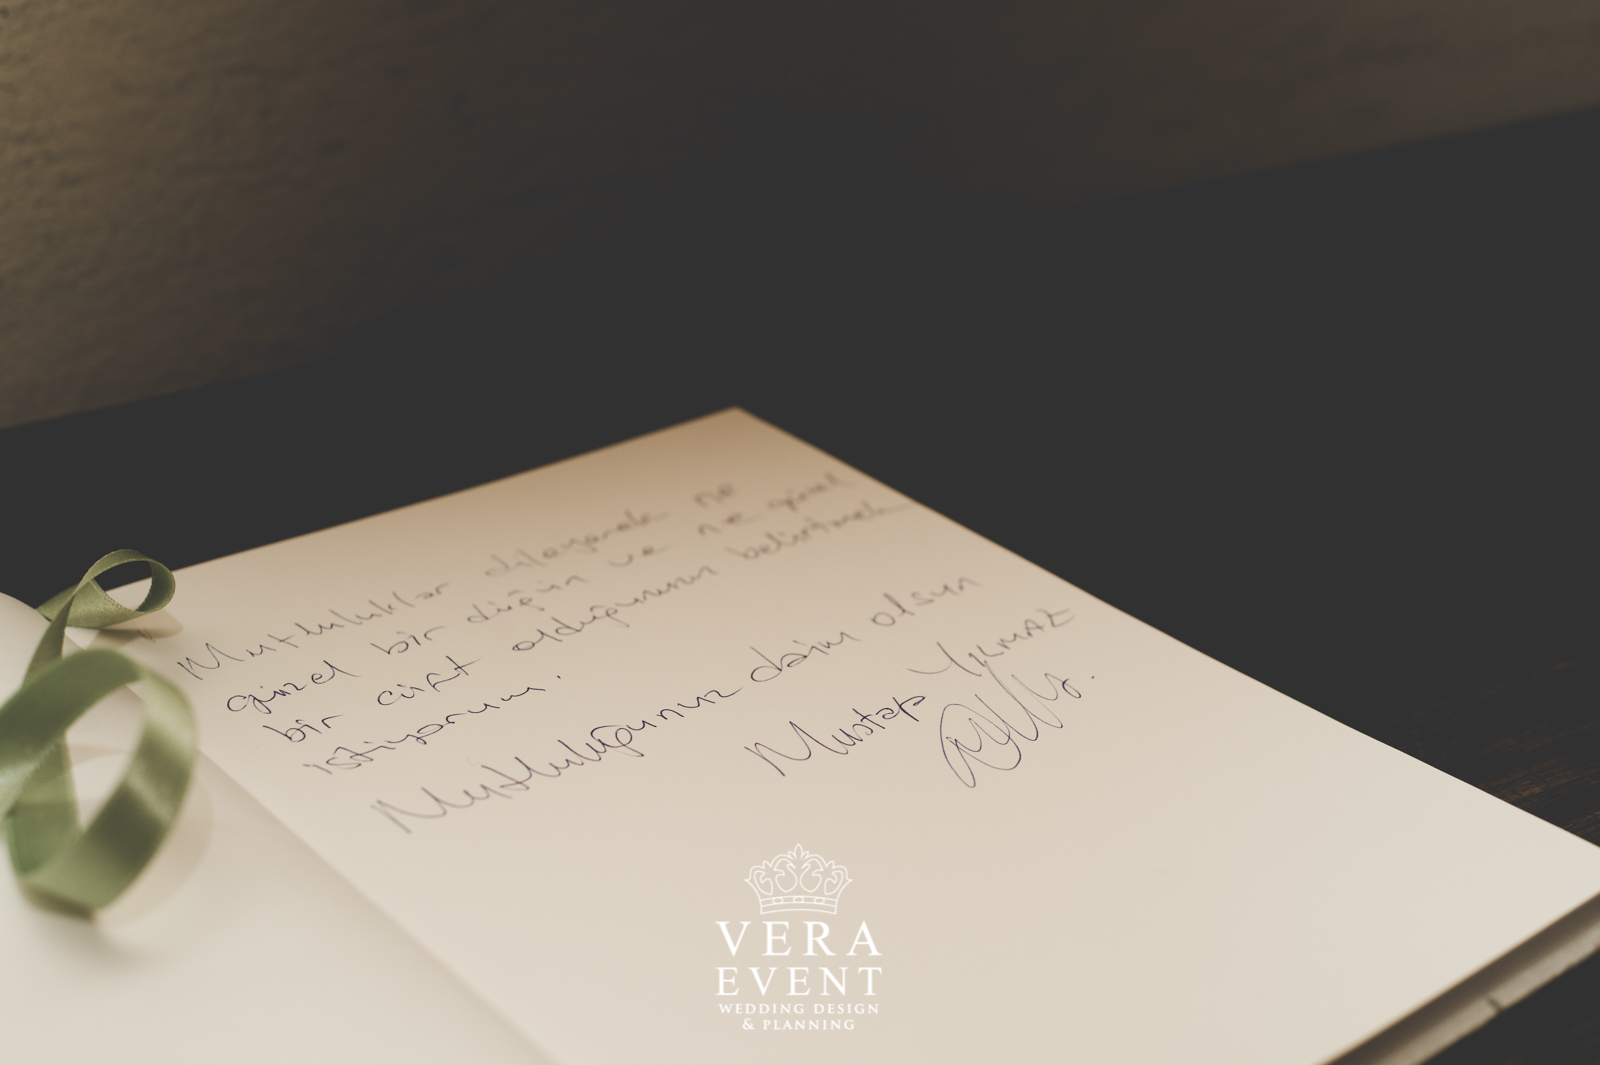 Mutluluklar dileyerek ne
güzel bir düğün ve ne güzel
bir çift olduğunuzu belirtmek
istiyorum.
Mutluluğunuz daim olsun
Mustafa YILMAZ
VERA
EVENT
WEDDING DESIGN
& PLANNING